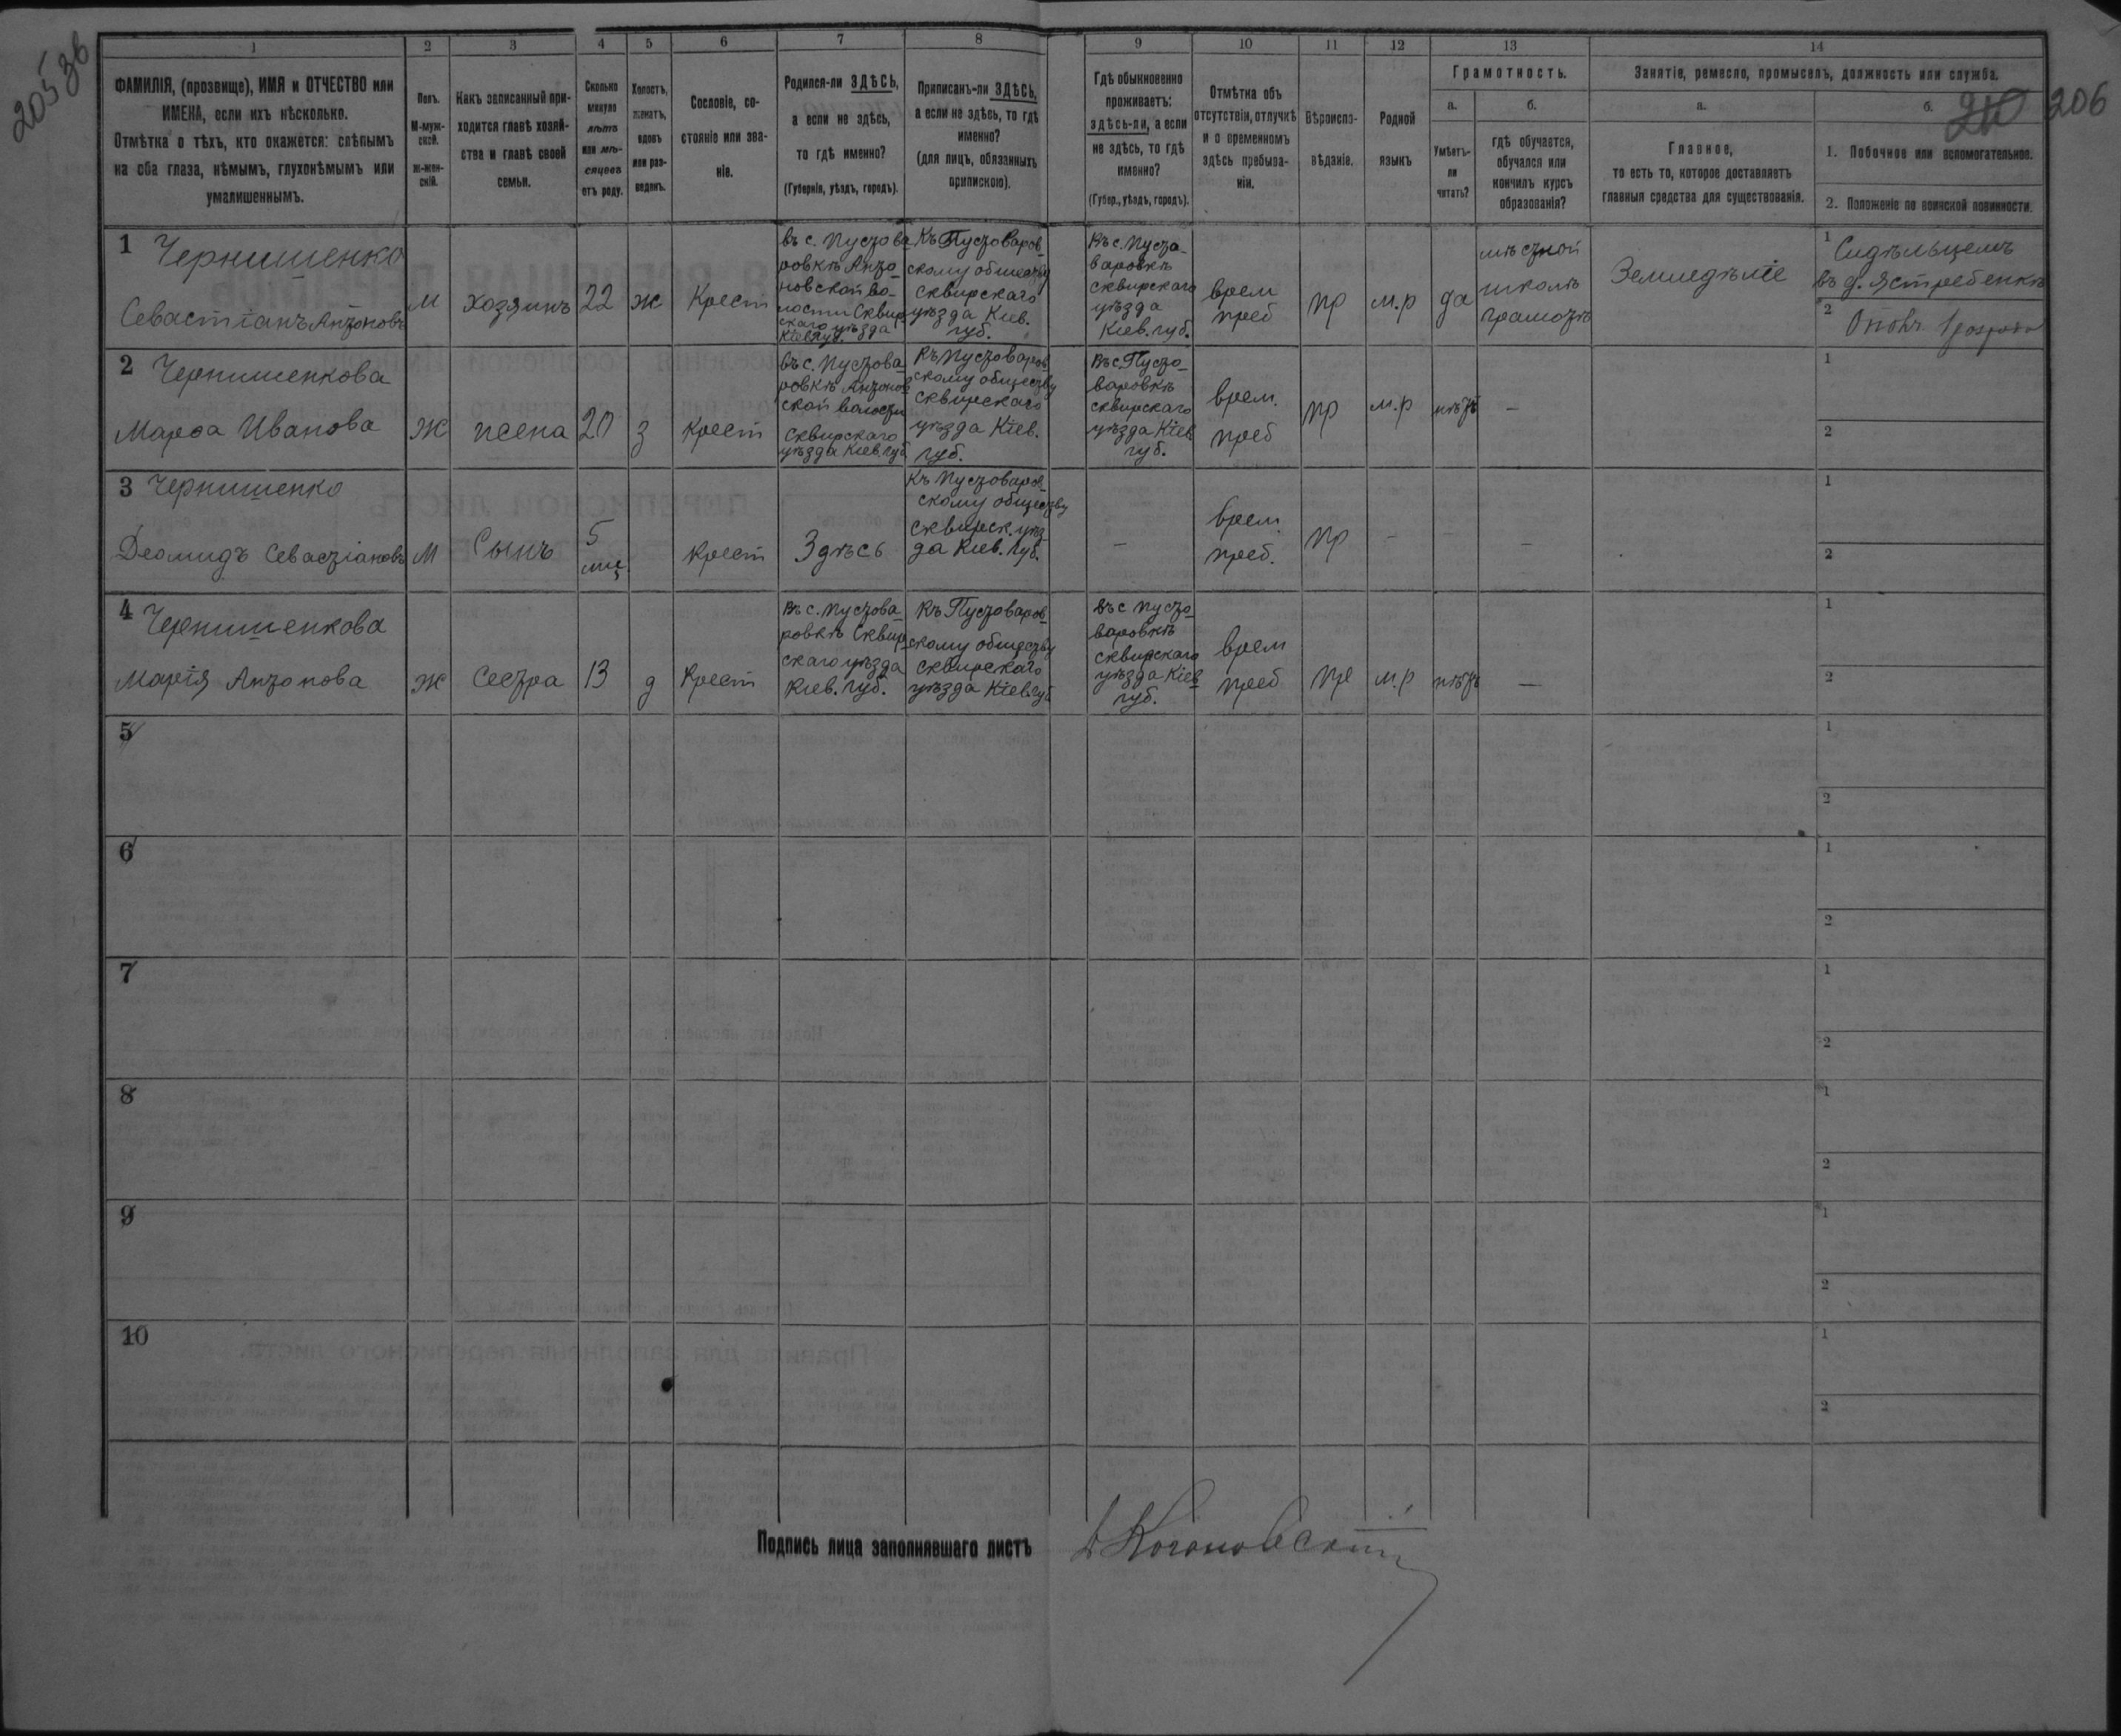 205 зв
206
1
2
3
4
5
6
7
8
9
10
11
12
13
14
ФАМИЛІЯ, (прозвище), ИМЯ и ОТЧЕСТВО или
ИМЕНА, если ихъ нѣсколько.
Отмѣтка о тѣхъ, кто окажется: слѣпымъ
на оба глаза, нѣмымъ, глухонѣмымъ или
умалишеннымъ.
Полъ.
М-муж-
ской.
Ж-жен-
скій.
Какъ записанный при-
ходится главѣ хозяй-
ства и главѣ своей
семьи.
Сколько
минуло
лѣтъ
или мѣ-
сяцевъ
отъ роду.
Холостъ,
женатъ,
вдовъ
или раз-
веденъ.
Сословіе, со-
стояніе или зва-
ніе.
Родился-ли ЗДѢСЬ,
а если не здѣсь,
то гдѣ именно?
(Губернія, уѣздъ, городъ).
Приписанъ-ли ЗДѢСЬ,
а если не здѣсь, то гдѣ
именно?
(для лицъ, обязанныхъ
припискою).
Гдѣ обыкновенно
проживаетъ:
здѣсь-ли, а если
не здѣсь, то гдѣ
именно?
(Губер., уѣздъ, городъ).
Отмѣтка объ
отсутствіи, отлучкѣ
и о временномъ
здѣсь пребыва-
ніи.
Вѣроиспо-
вѣданіе.
Родной
языкъ
Грамотность.
а.
Умѣетъ-
ли
читать?
б.
гдѣ обучается,
обучался или
кончилъ курсъ
образованія?
Занятіе, ремесло, промыселъ, должность или служба.
а.
Главное,
то есть то, которое доставляетъ
главныя средства для существованія.
б.
1. Побочное или вспомогательное.
2. Положеніе по воинской повинности.
1 Чернишенко
Севастіанъ Антоновъ
М
хозяинъ
22
ж
Крест
въ с. Пустова
ровкѣ Анто-
новской во-
лости Сквир
скаго уѣзда
Кіев губ.
Къ Пустоваров-
скому обществу
Сквирскаго
уѣзда Кіев.
губ.
Въ с. Пуста-
варовкѣ
Сквирскаго
уѣзда
Кіев. губ.
врем
преб
пр
м.р
да
мѣстной
школѣ
грамотѣ
Земледѣліе
1 Сидѣльцемъ
въ д. Ястребенкѣ
2
2 Чернишенкова
Марѳа Иванова
Ж
жена
20
з
крест
въ с. Пустова-
ровкѣ Антонов
ской волости
Сквирскаго
уѣзда Кіев. губ
Къ Пустоваров-
скому обществу
Сквирскаго
уѣзда Кіев.
губ.
Въ с. Пусто-
варовкѣ
Сквирскаго
уѣзда Кіев
губ.
врем.
преб
пр
м.р
нѣтъ
—
1
2
3 Чернишенко
Деомидъ Севастіановъ
М
Сынъ
5
мц.
крест
Здѣсь
Къ Пустоваров-
скому обществу
Сквирск. уѣз-
да Кіев. Губ.
—
врем.
преб.
пр
-
-
—
1
2
4 Чернишенкова
Марія Антонова
Ж
Сестра
13
д
Крест
Въ с. Пустова-
ровкѣ Сквир-
скаго уѣзда
Кіев. Губ.
Къ Пустоваров-
скому обществу
Сквирскаго
уѣзда Кіев губ
Въ с Пусто-
варовкѣ
Сквирскаго
уѣзда Кіев-
губ.
врем
преб
пр
м.р
нѣтъ
—
1
2
5
1
2
6
1
2
7
1
2
8
1
2
9
1
2
10
1
2
Подпись лица заполнявшаго листъ